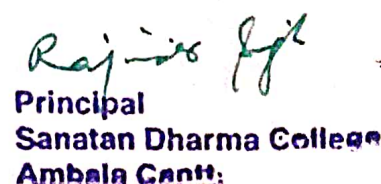 Rajinder Singh
Principal
Sanatan Dharma College
Ambala Cantt: